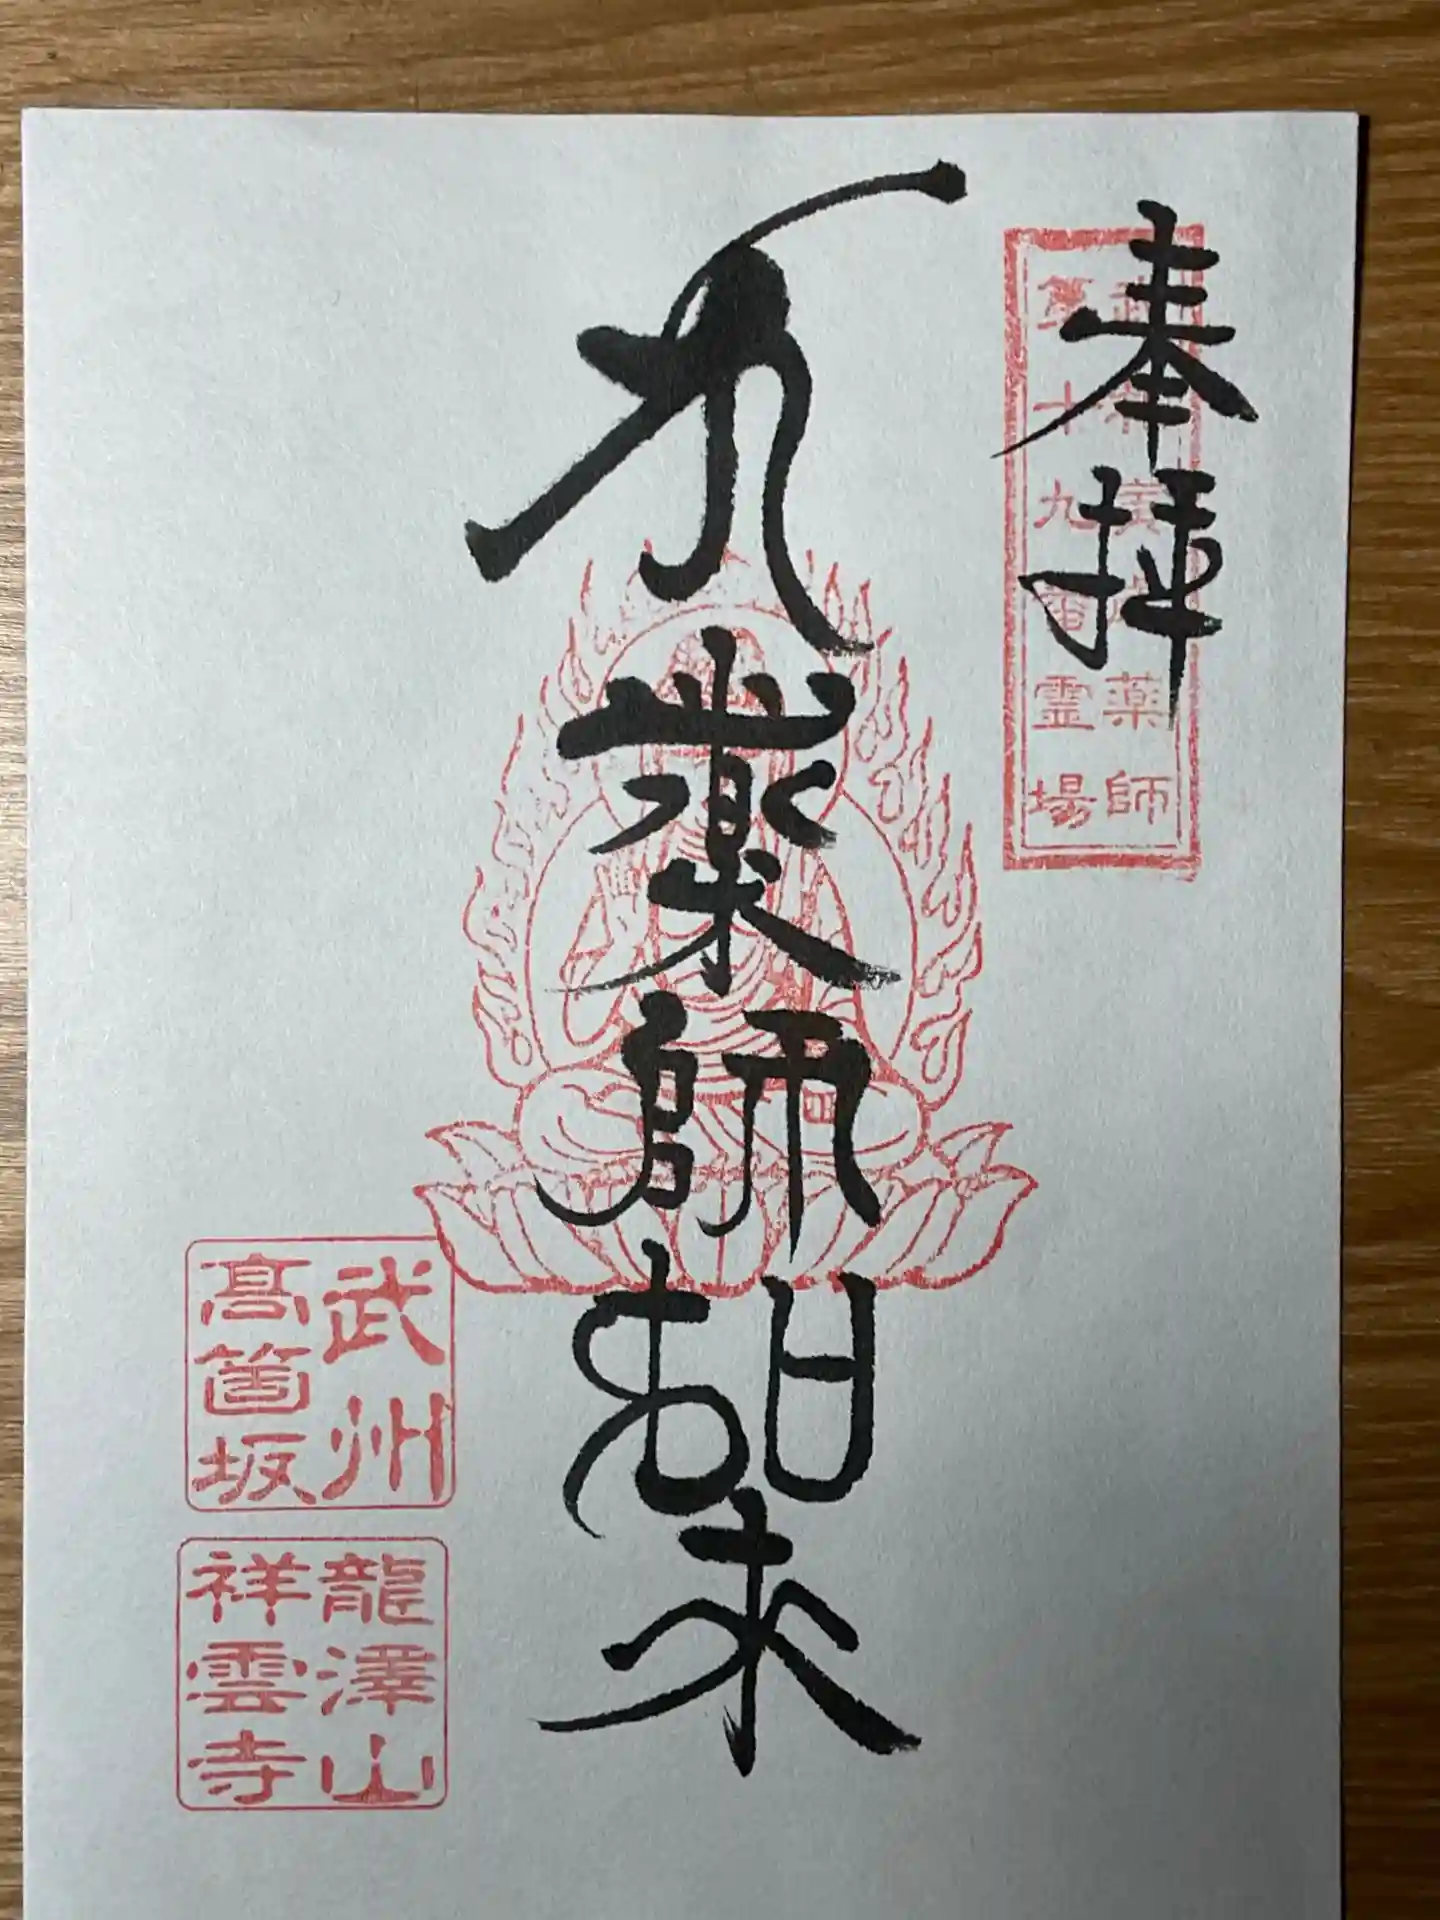 奉拝
武相寅歳薬師
第十九番霊場
薬師如来
武州
高箇坂
龍澤山
祥雲寺